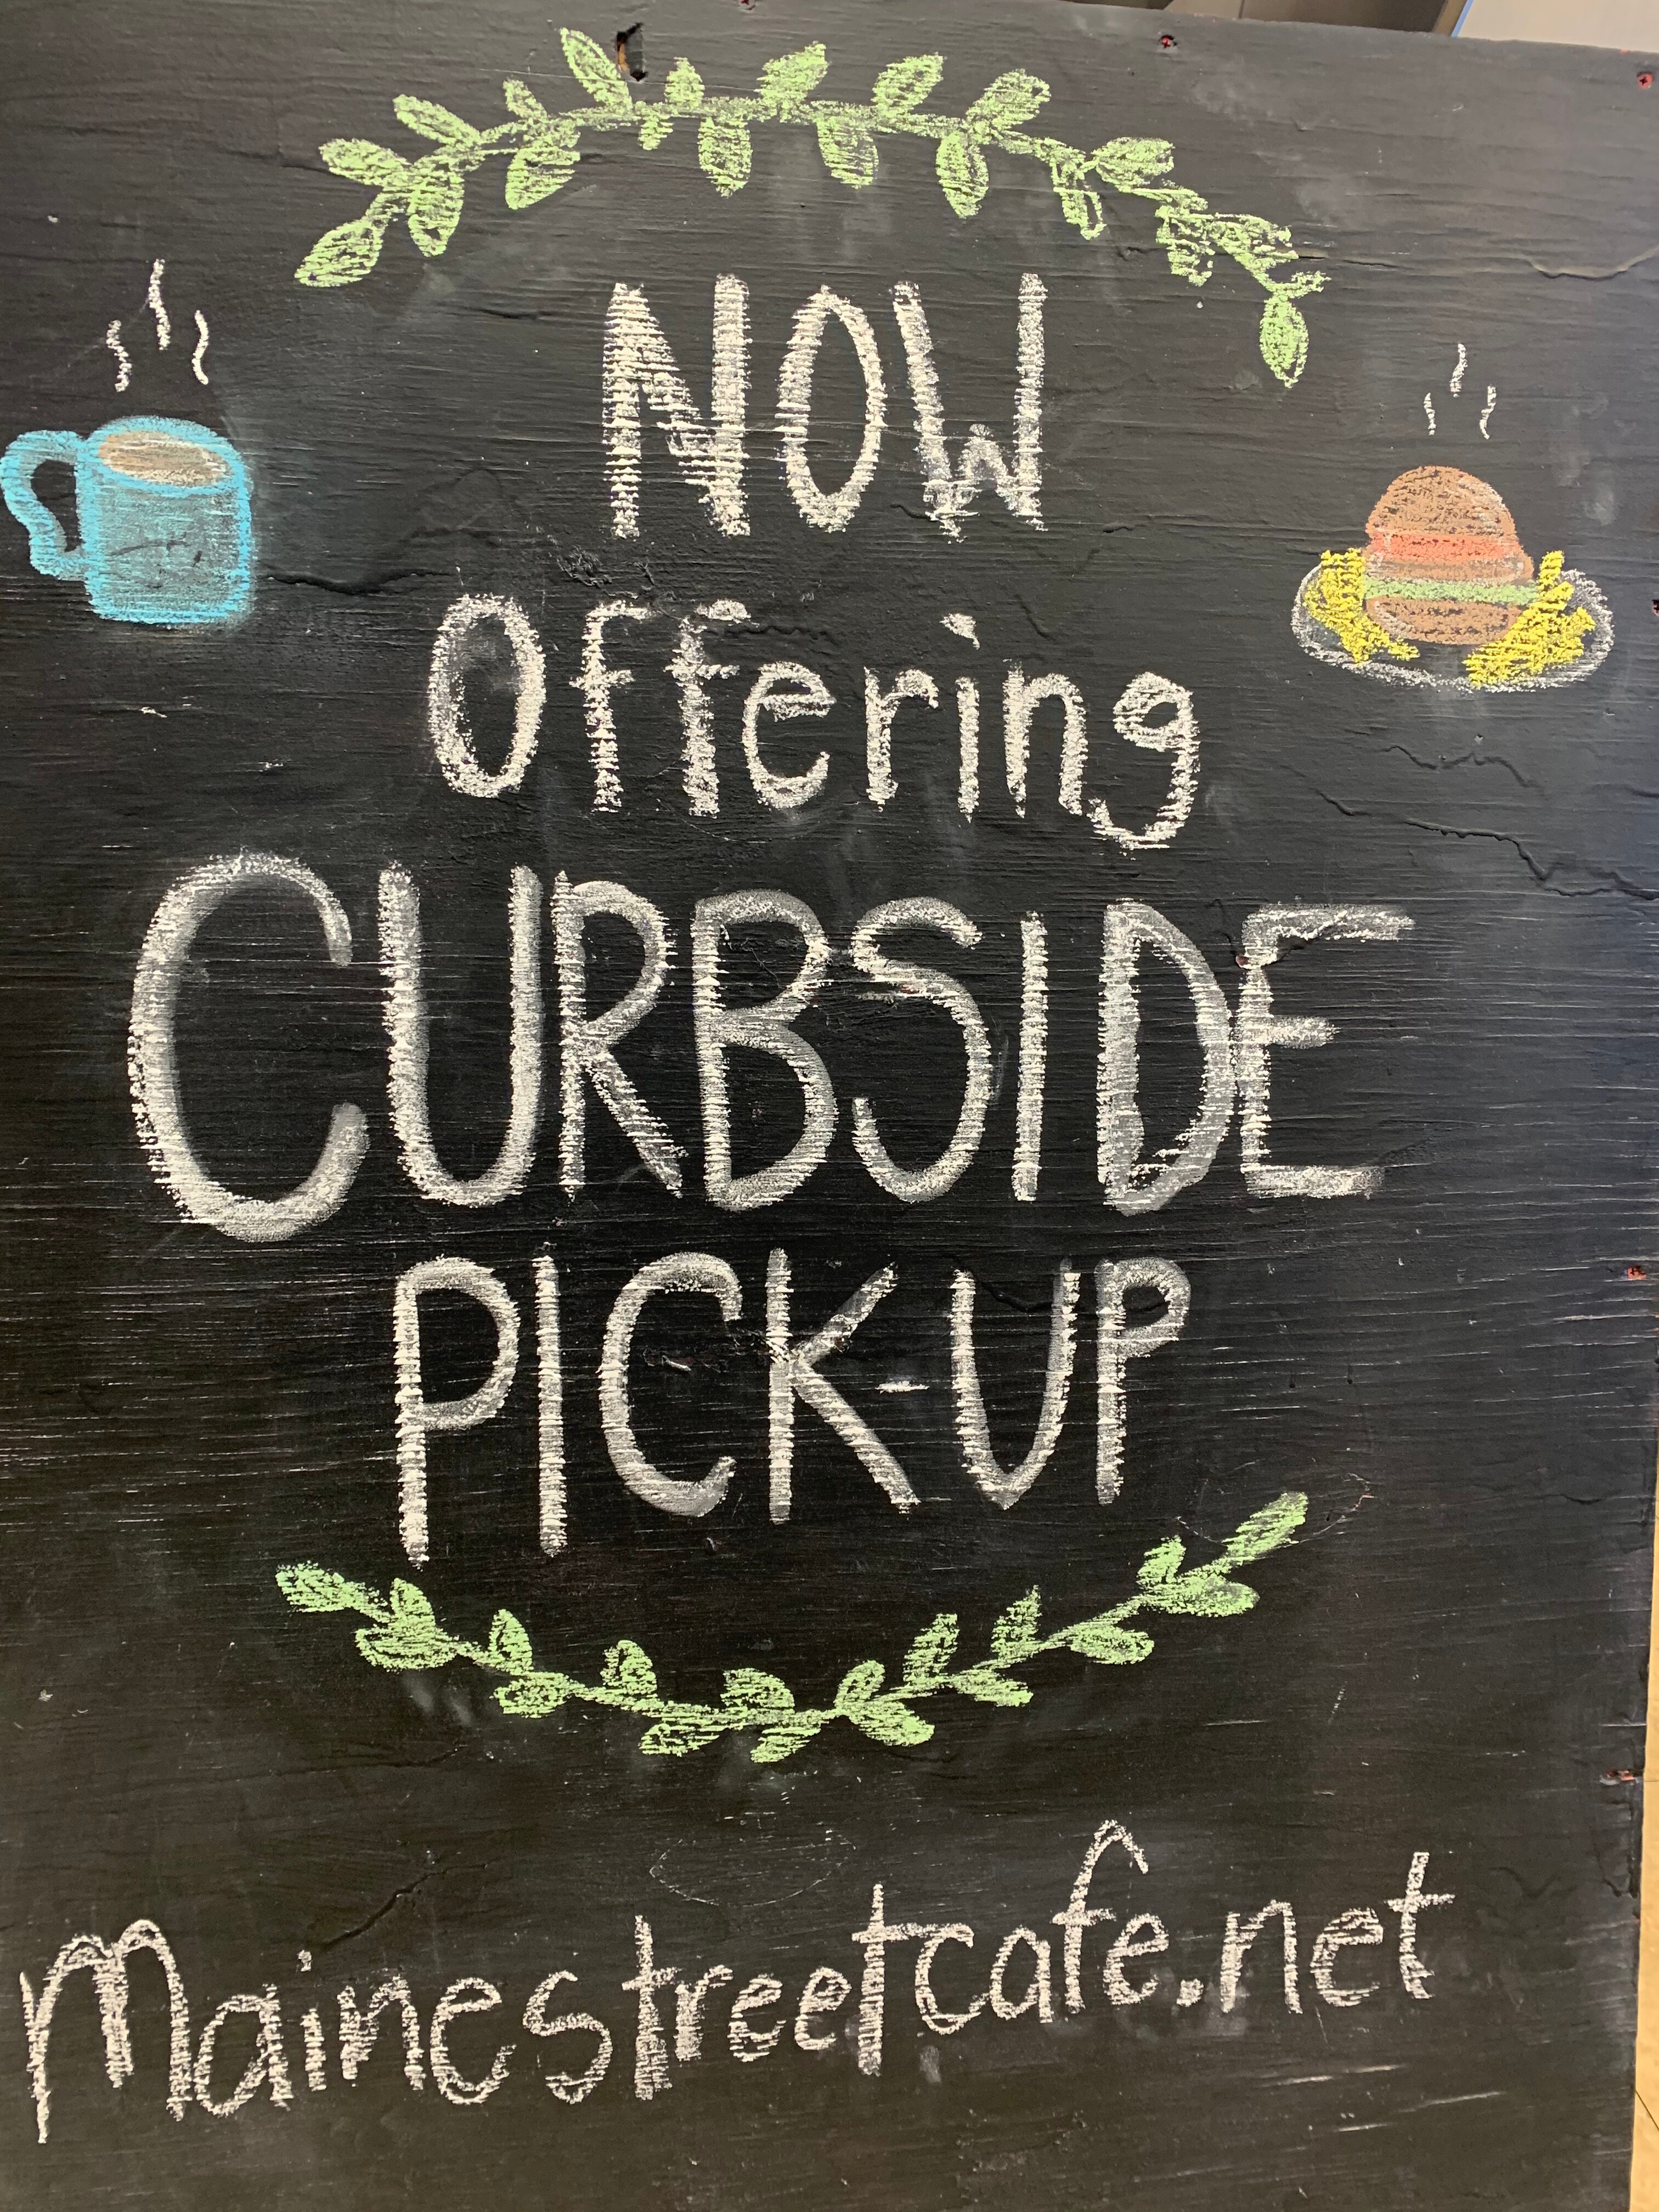 NOW
Offering
CURBSIDE
PICK-UP
Mainestreetcafe.net